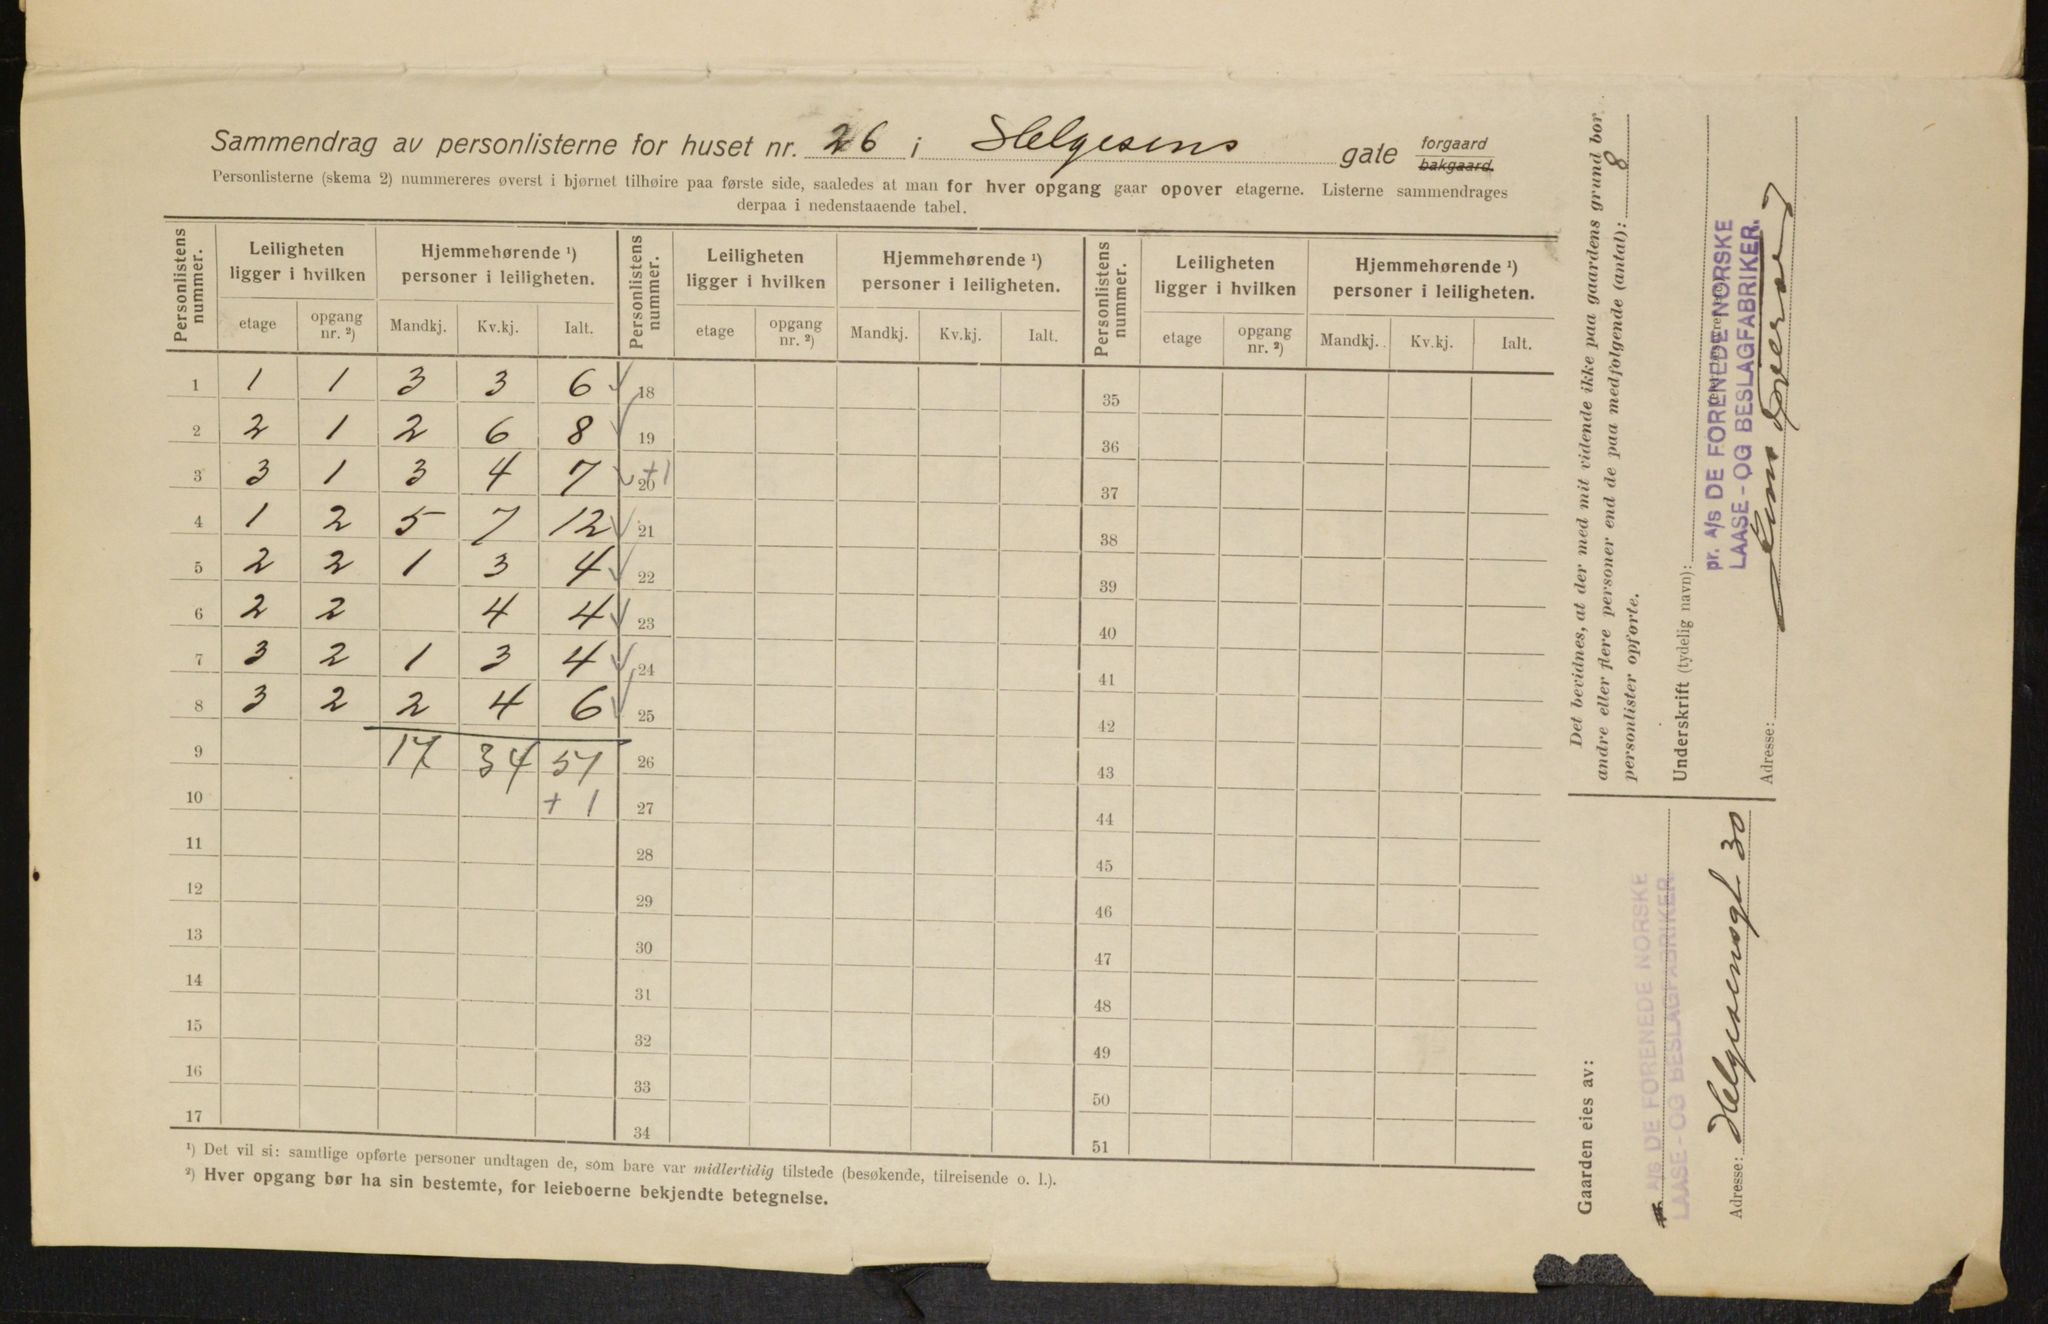 Sammendrag av personlisterne for huset nr. 26 i Helgesens gate forgaard bakgaard.
Personlisterne (skema 2) nummereres øverst i bjørnet tilhøire paa første side, saaledes at man for hver opgang gaar opover etagerne. Listerne sammendrages
derpaa i nedenstaaende tabel.
Personlistens nummer. Leiligheten ligger i hvilken Hjemmehørende ¹) personer i leiligheten. Personlistens nummer. Leiligheten ligger i hvilken Hjemmehørende ¹) personer i leiligheten. Personlistens nummer. Leiligheten ligger i hvilken Hjemmehørende ¹) personer i leiligheten.
etage opgang nr. ²) Mandkj. Kv.kj. Ialt. etage opgang nr. ²) Mandkj. Kv.kj. Ialt. etage opgang nr. ²) Mandkj. Kv.kj. Ialt.
1 1 1 3 3 6 18 35
2 2 1 2 6 8 19 36
3 3 1 3 4 7 +1 20 37
4 1 2 5 7 12 21 38
5 2 2 1 3 4 22 39
6 2 2 4 4 23 40
7 3 2 1 3 4 24 41
8 3 2 2 4 6 25 42
9 17 34 51 26 43
10 + 1 27 44
11 28 45
12 29 46
13 30 47
14 31 48
15 32 49
16 33 50
17 34 51
¹) Det vil si: samtlige opførte personer undtagen de, som bare var midlertidig tilstede (besøkende, tilreisende o. l.).
²) Hver opgang bør ha sin bestemte, for leieboerne bekjendte betegnelse.
Det bevidnes, at der med mit vidende ikke paa gaardens grund bor
andre eller flere personer end de paa medfølgende (antal): 8
personlister opførte.
Underskrift (tydelig navn):
pr. A/S DE FORENEDE NORSKE
LAASE- OG BESLAGFABRIKER.
Adresse:
Gaarden eies av:
A/S DE FORENEDE NORSKE
LAASE- OG BESLAGFABRIKER
Adresse: Helgesensgt. 30